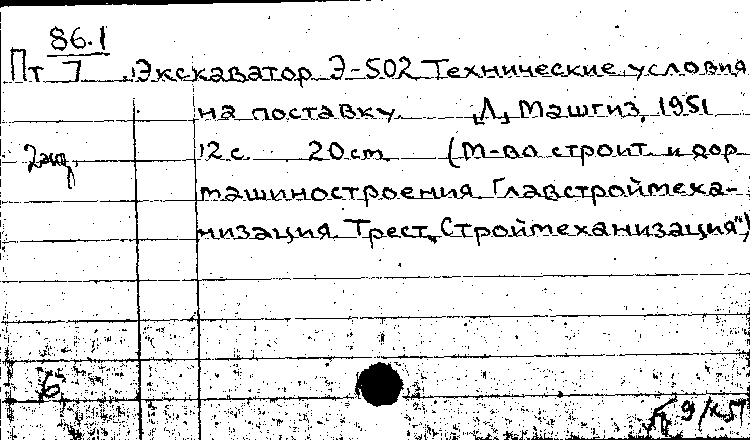 86.1
Пт 7 Экскаватор Э-502 Технические условия
на поставку. [Л] Машгиз, 1951
2 экз. 12 с. 20 см (М-во строит. и дор.
машиностроения. Главстроймеха-
низация. Трест "Строймеханизация")
9/X.51